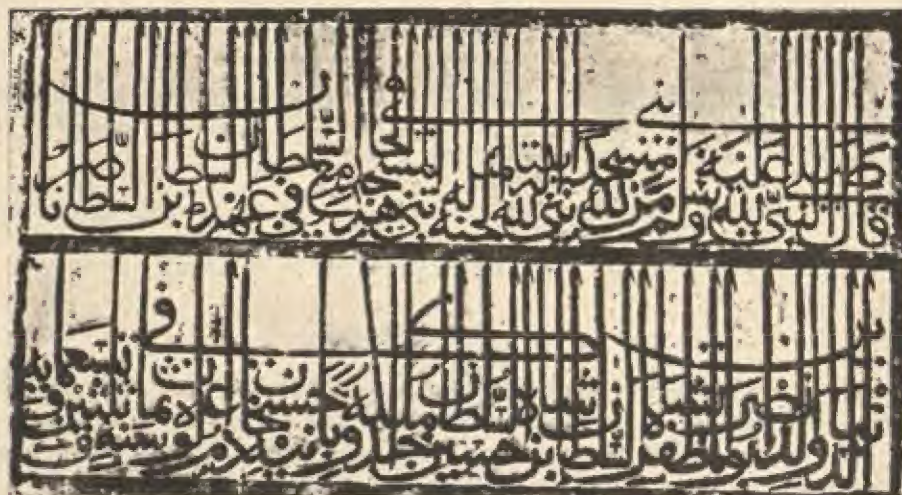 قال النبي صلى الله عليه وسلم من بنى مسجدا لله بنى الله له مثله في الجنة بنى هذا المسجد الجامع في عهد السلطان ابن السلطان ناصر
الدنيا والدين ابو المظفر نصرت شاه السلطان بن حسين شاه السلطان خلد الله ملكه خان في سنة ثلثين وتسعماية